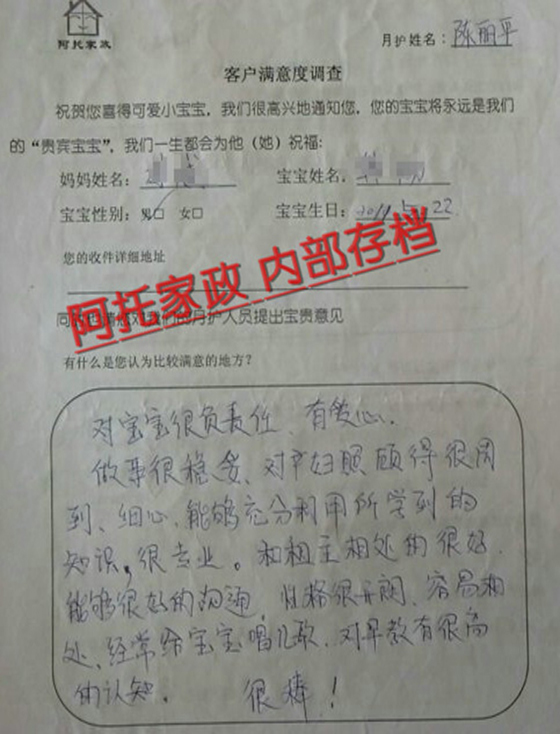 阿托家政
月护姓名：陈丽平
客户满意度调查
祝贺您喜得可爱小宝宝，我们很高兴地通知您，您的宝宝将永远是我们
的“贵宾宝宝”，我们一生都会为他（她）祝福：
妈妈姓名： 宝宝姓名：
宝宝性别：男□ 女□ 宝宝生日： 5. 22
您的收件详细地址
阿托家政 内部存档
对我们的月护人员提出宝贵意见
有什么是您认为比较满意的地方？
对宝宝很负责任、有爱心.
做事很稳妥、对产妇照顾得很周
到、细心、能够充分利用所学到的
知识，很专业。和雇主相处的很好.
能够很好的沟通，性格很开朗、容易相
处、经常给宝宝唱儿歌、对早教有很高
的认知. 很棒！